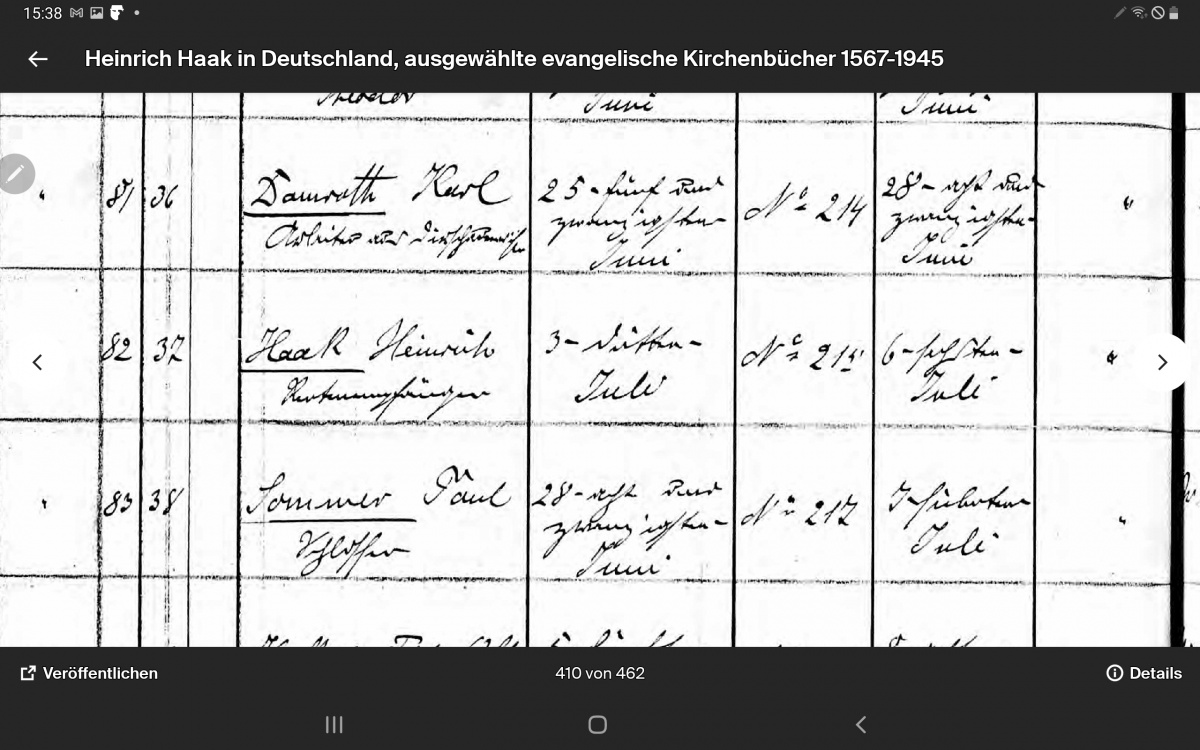 15:38
Heinrich Haak in Deutschland, ausgewählte evangelische Kirchenbücher 1567-1945
Juni
Juni
81 36 Damrath Karl 25 - fünf und No 214 28 - acht und
Arbeiter aus zwanzigsten zwanzigsten
Juni Juni
82 37 Haak Heinrich 3 - dritten - No 215 6 - sechsten -
Rentenempfänger Juli Juli
83 38 Sommer Paul 28 - acht und No 217 7 - siebenten
Schlosser zwanzigsten - Juli
Juni
Veröffentlichen 410 von 462 Details